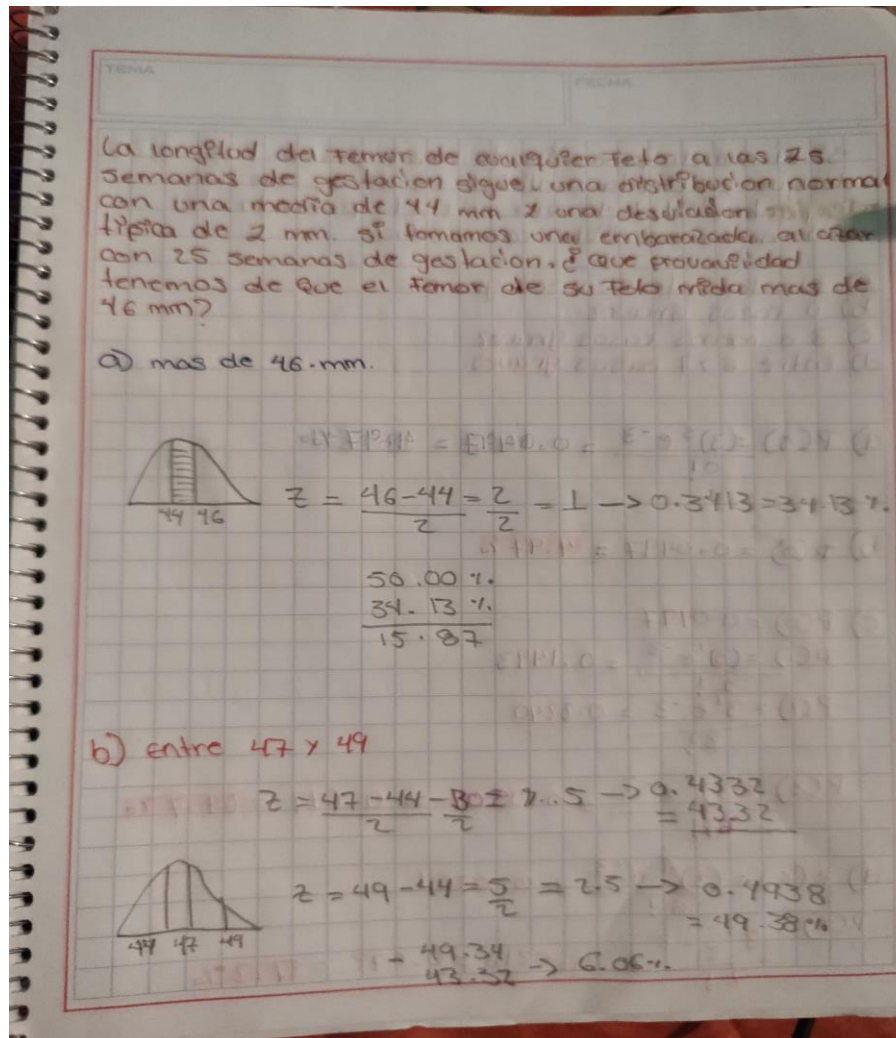 TEMA
FECHA
La longitud del femor de cualquier feto a las 25
semanas de gestacion sigue una distribucion normal
con una media de 44 mm y una desviacion
tipica de 2 mm. si tomamos una embarazada al azar
con 25 semanas de gestacion. ¿ que provavilidad
tenemos de que el femor de su feto mida mas de
46 mm?
a) mas de 46.mm.
44 46
z = 46-44 = 2 = 1 -> 0.3413 = 34.13 %.
2 2
50.00 %.
34.13 %.
15.87
b) entre 47 y 49
z = 47-44 - 3 = 1.5 -> 0.4332
2 2
= 43.32
z = 49-44 = 5 = 2.5 -> 0.4938
2
= 49.38 %
44 47 49
- 49.34
43.32 -> 6.06 %.